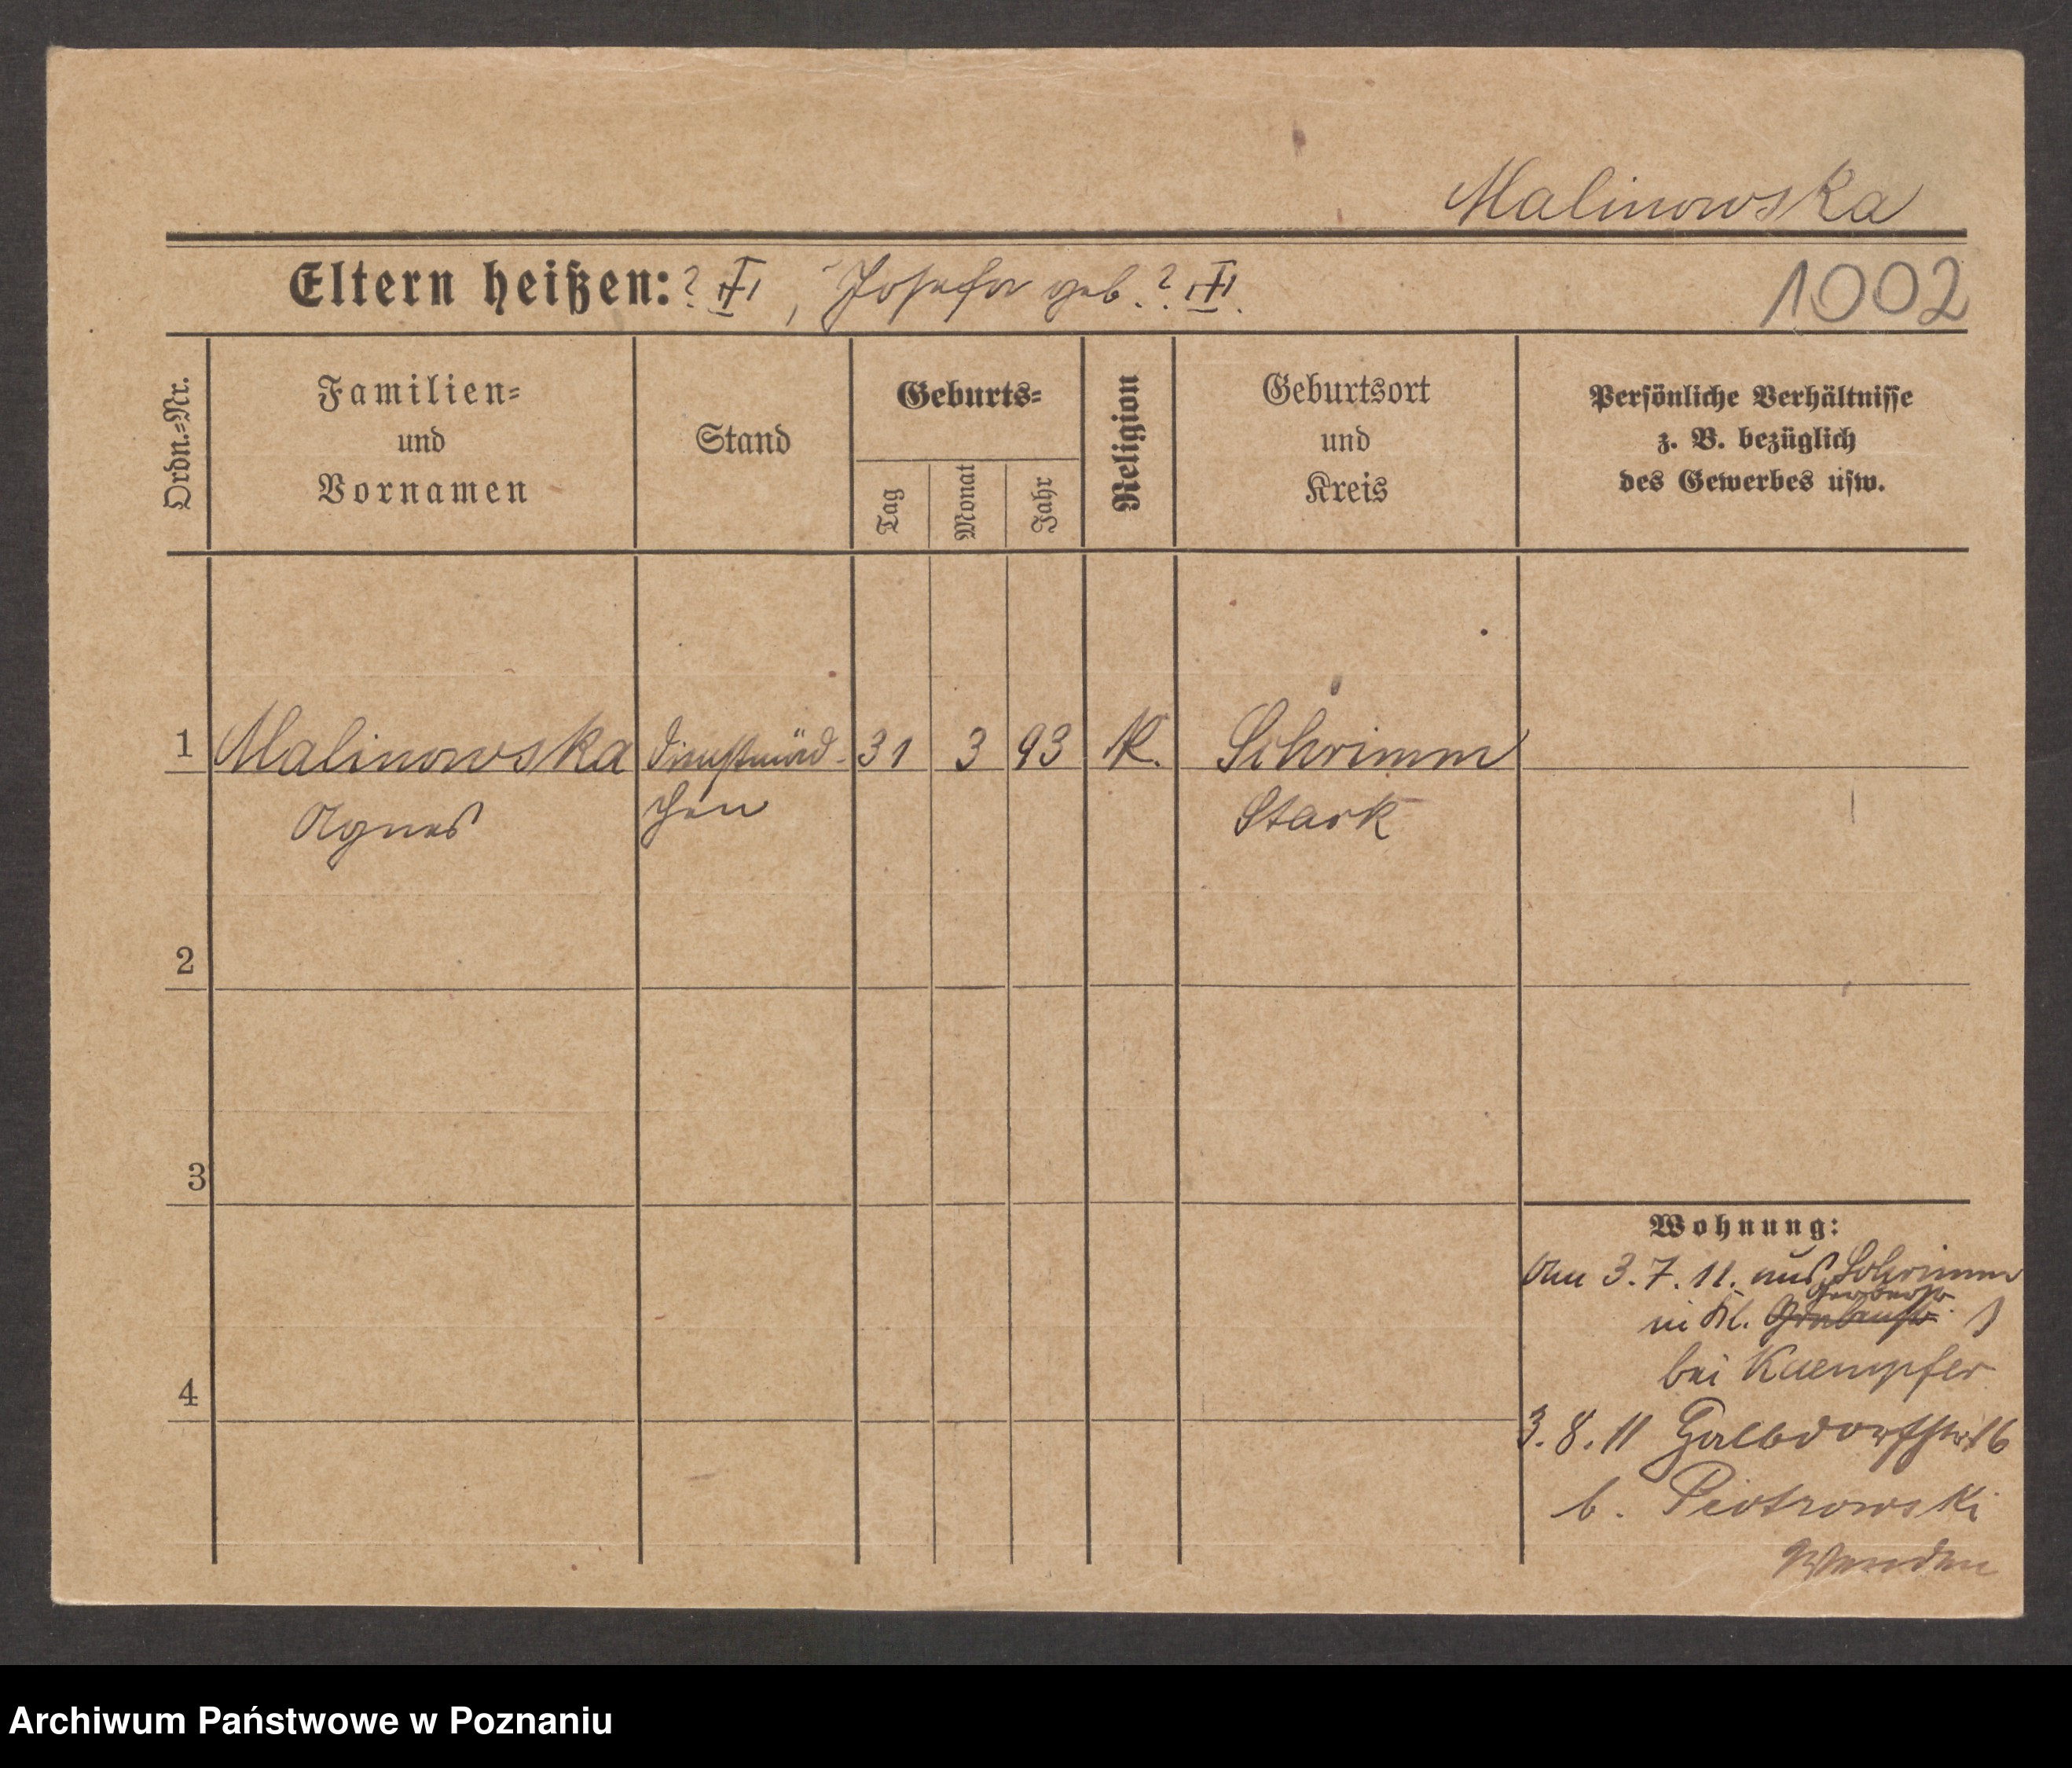 Malinowska
Eltern heißen: ? †, Josefa geb. ? †.
1002
Ordn.=Nr.
Familien=
und
Vornamen
Stand
Geburts=
Tag
Monat
Jahr
Religion
Geburtsort
und
Kreis
Persönliche Verhältnisse
z. B. bezüglich
des Gewerbes usw.
1 Malinowska Dienstmäd- 31 3 93 K. Schrimm
Agnes chen Stadt
2
3
4
Wohnung:
Am 3.7.11. aus Schrimm
Gerberstr.
in Kl. Grabenstr.
bei Kaempfer
3.8.11 16
b. Piotrowski
Wenden
Archiwum Państwowe w Poznaniu